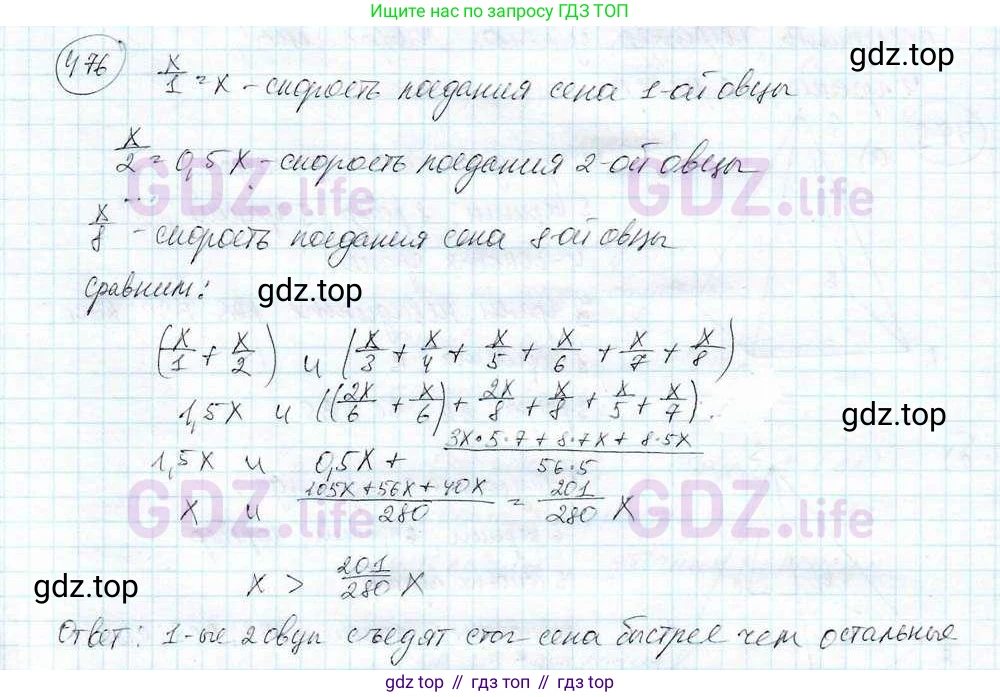 Ищите нас по запросу ГДЗ ТОП
gdz.top
476 x/1 = x - скорость поедания сена 1-ой овцы
x/2 = 0,5x - скорость поедания 2-ой овцы
GDZ.life GDZ.life
...
x/8 - скорость поедания сена 8-ой овцы
Сравним:
gdz.top
(x/1 + x/2) и (x/3 + x/4 + x/5 + x/6 + x/7 + x/8)
1,5x и ((2x/6 + x/6) + 2x/8 + x/8 + x/5 + x/7).
gdz.top
1,5x и 0,5x + (3x·5·7 + 8·7x + 8·5x)/(56·5)
x и (105x + 56x + 40x)/280 = 201/280 x
GDZ.life GDZ.life
gdz.top
x > 201/280 x
Ответ: 1-ые 2 овцы съедят стог сена быстрее чем остальные
gdz.top // gdz.top // gdz.top